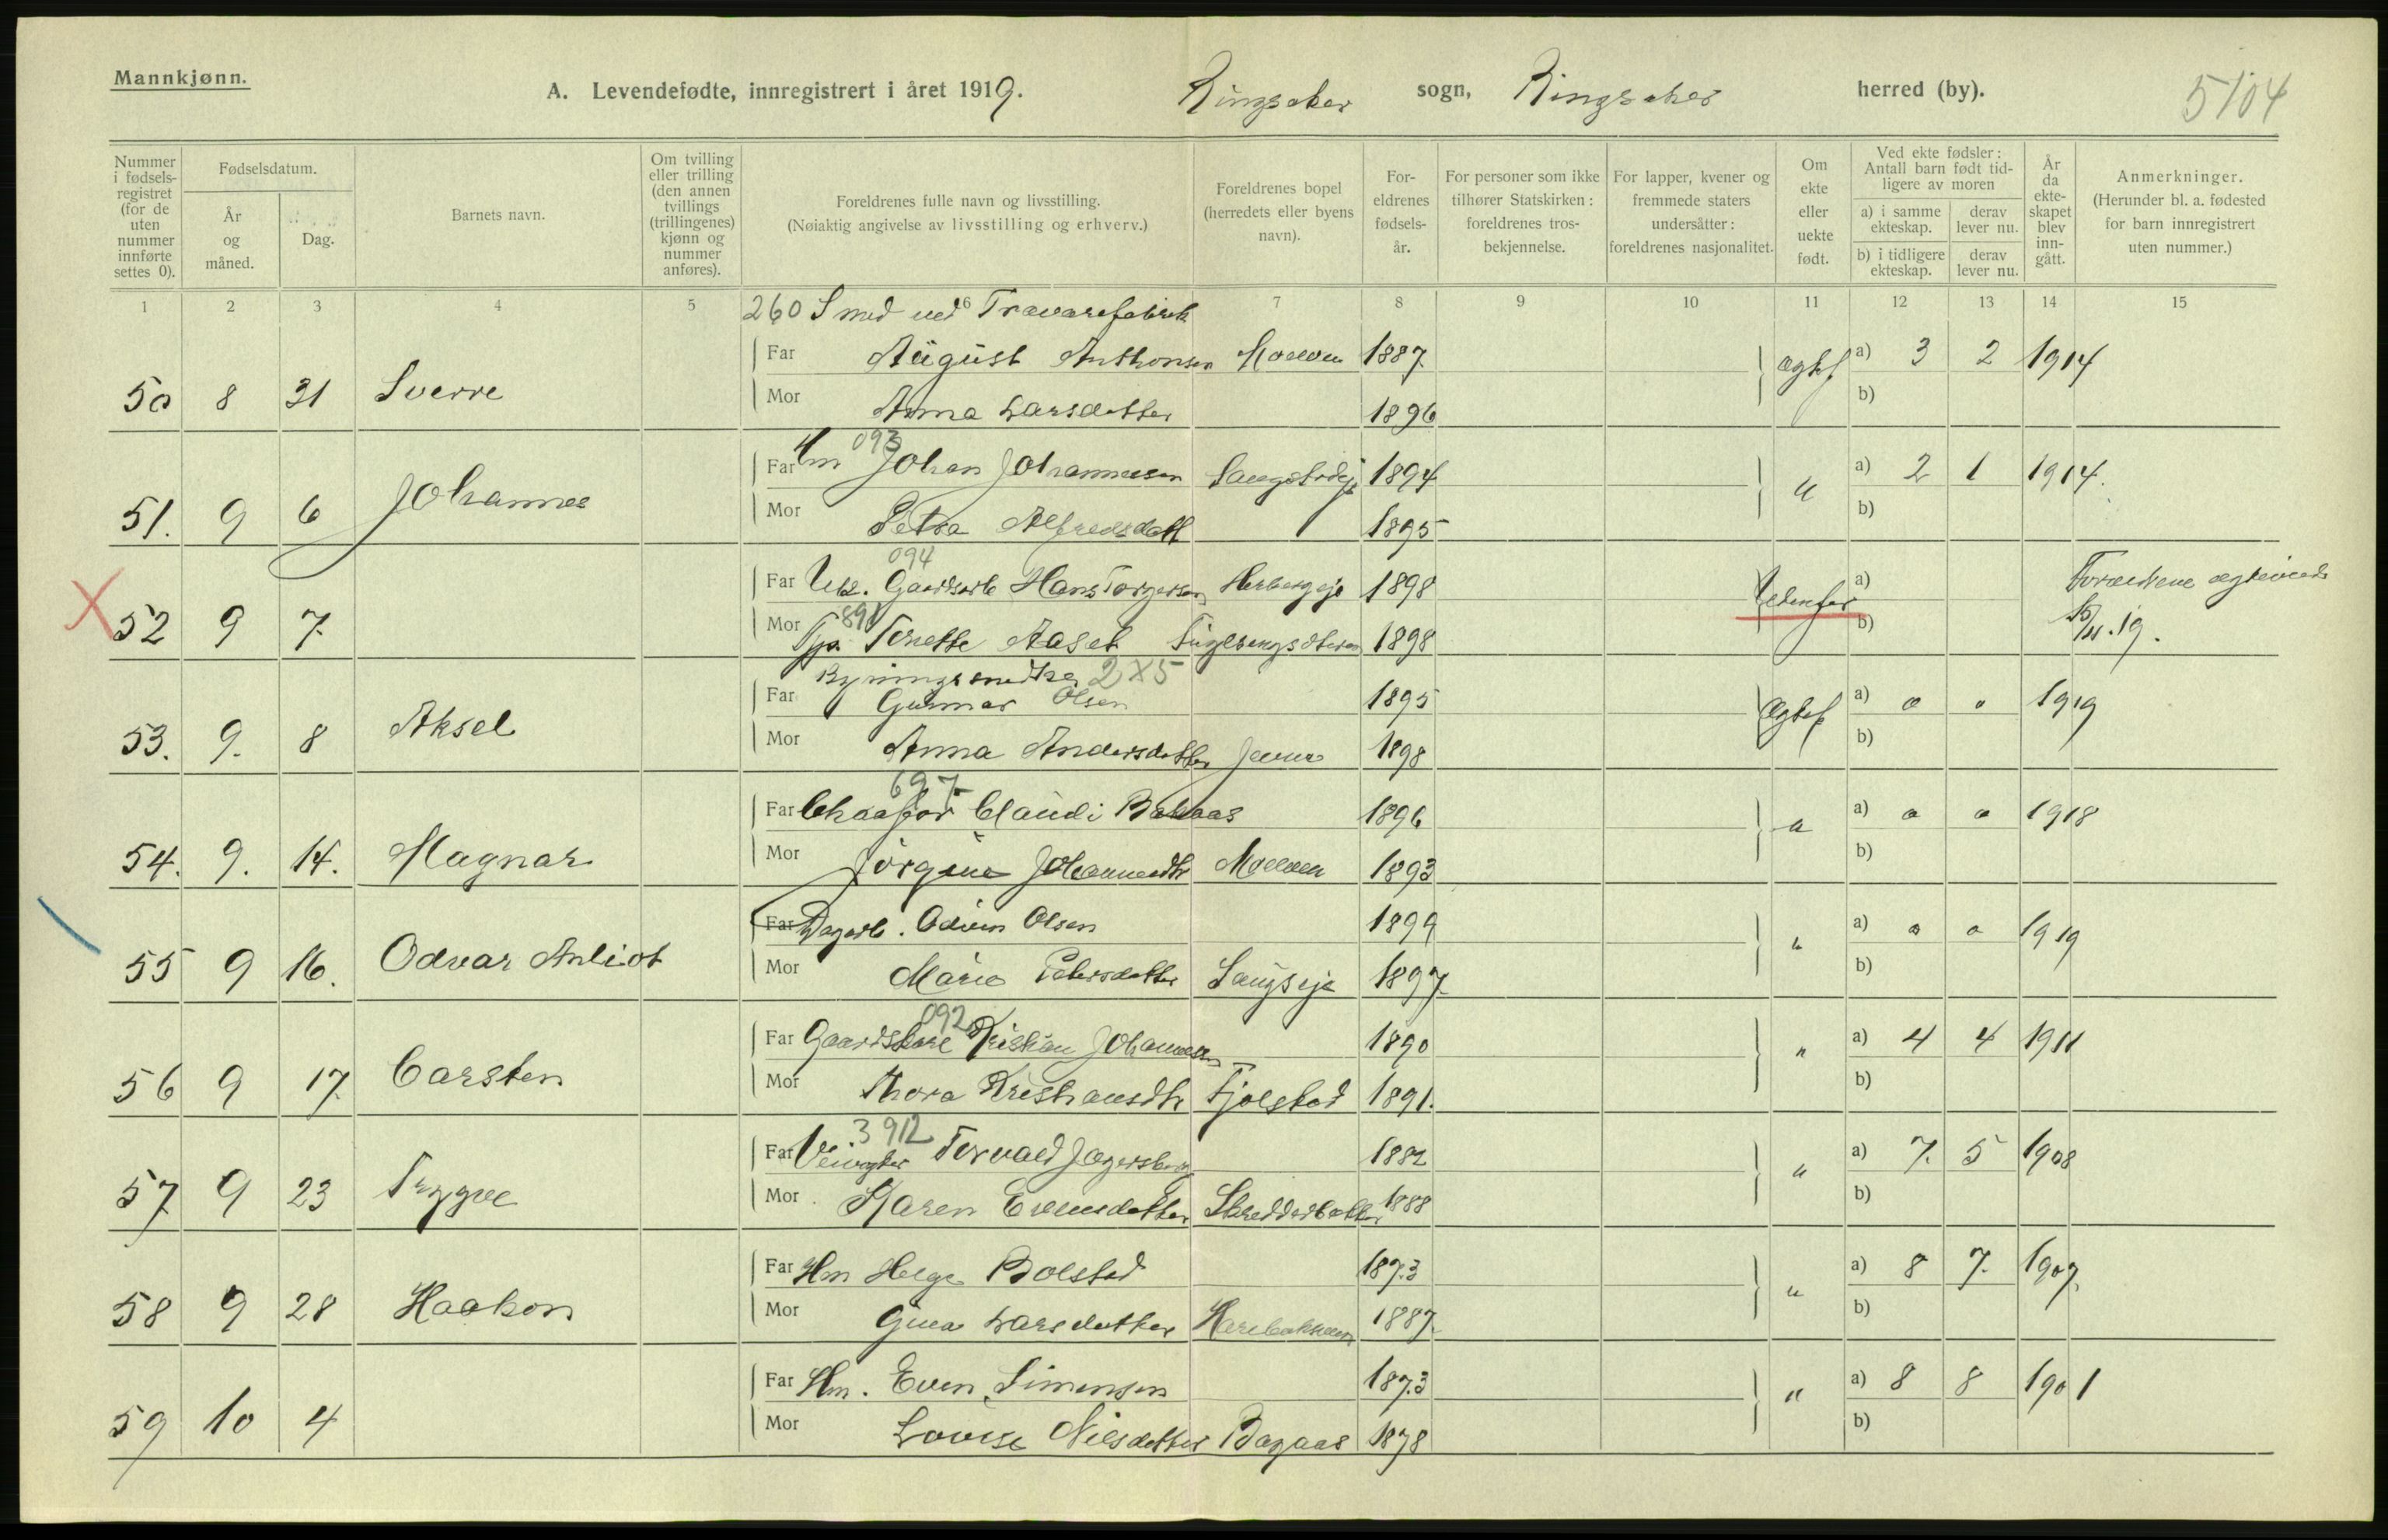 Mannkjønn.
A. Levendefødte, innregistrert i året 1919. Ringsaker sogn, Ringsaker herred (by). 5104
Nummer i fødselsregistret (for de uten nummer innførte settes 0).
Fødselsdatum.
År og måned.
Dag.
Barnets navn.
Om tvilling eller trilling (den annen tvillings (trillingenes) kjønn og nummer anføres).
Foreldrenes fulle navn og livsstilling.
(Nøiaktig angivelse av livsstilling og erhverv.)
Foreldrenes bopel (herredets eller byens navn).
Foreldrenes fødselsår.
For personer som ikke tilhører Statskirken: foreldrenes trosbekjennelse.
For lapper, kvener og fremmede staters undersåtter: foreldrenes nasjonalitet.
Om ekte eller uekte født.
Ved ekte fødsler: Antall barn født tidligere av moren
a) i samme ekteskap.
derav lever nu.
b) i tidligere ekteskap.
derav lever nu.
År da ekteskapet blev inngått.
Anmerkninger.
(Herunder bl. a. fødested for barn innregistrert uten nummer.)
1 2 3 4 5 6 7 8 9 10 11 12 13 14 15
260 Smed ved Trævarefabrik
Far August Anthonsen Moelven 1887 Ægtef a) 3 2 1914
50 8 31 Sverre
Mor Anna Larsdatter 1896 b)
093
Far Hm Johan Johannessen 1894 " a) 2 1 1914.
51. 9 6 Johannes
Mor Petra Alfredsdatt 1895 b)
094
Far Uk. Gaardsarb Hans Torgersen 1898 Udenfor a)
X 52 9 7.
Mor 891 Tj. Aaset 1898 b) 19.
2X5
Far Gunnar Olsen 1895 Ægtef a) 0 0 1919
53. 9. 8 Aksel
Mor Anna Andersdatter 1898 b)
697
Far Claudi 1896 " a) 0 0 1918
54. 9. 14. Magnar
Mor Jörgine Moelven 1893 b)
Far Dagarb. Odvin Olsen 1899 " a) 0 0 1919
55 9 16. Odvar Anliot
Mor Marie Petersdatter 1897 b)
092
Far Kristian Johannessen 1890 " a) 4 4 1911
56 9 17 Carsten
Mor Thora Kristiansdtr Fjølstad 1891. b)
3 912
Far Veivogter Torvald Jagersberg 1882 " a) 7. 5 1908
57 9 23 Trygve
Mor Karen Evensdatter Skredderbakken 1888 b)
Far Hm Helge Bolstad 1873 " a) 8 7. 1907.
58 9 28 Haakon
Mor Gina Larsdatter 1887. b)
Far Hm. Even Simensen 1873 " a) 8 8 1901
59 10 4
Mor Lovise Nilsdatter Bagaas 1878 b)